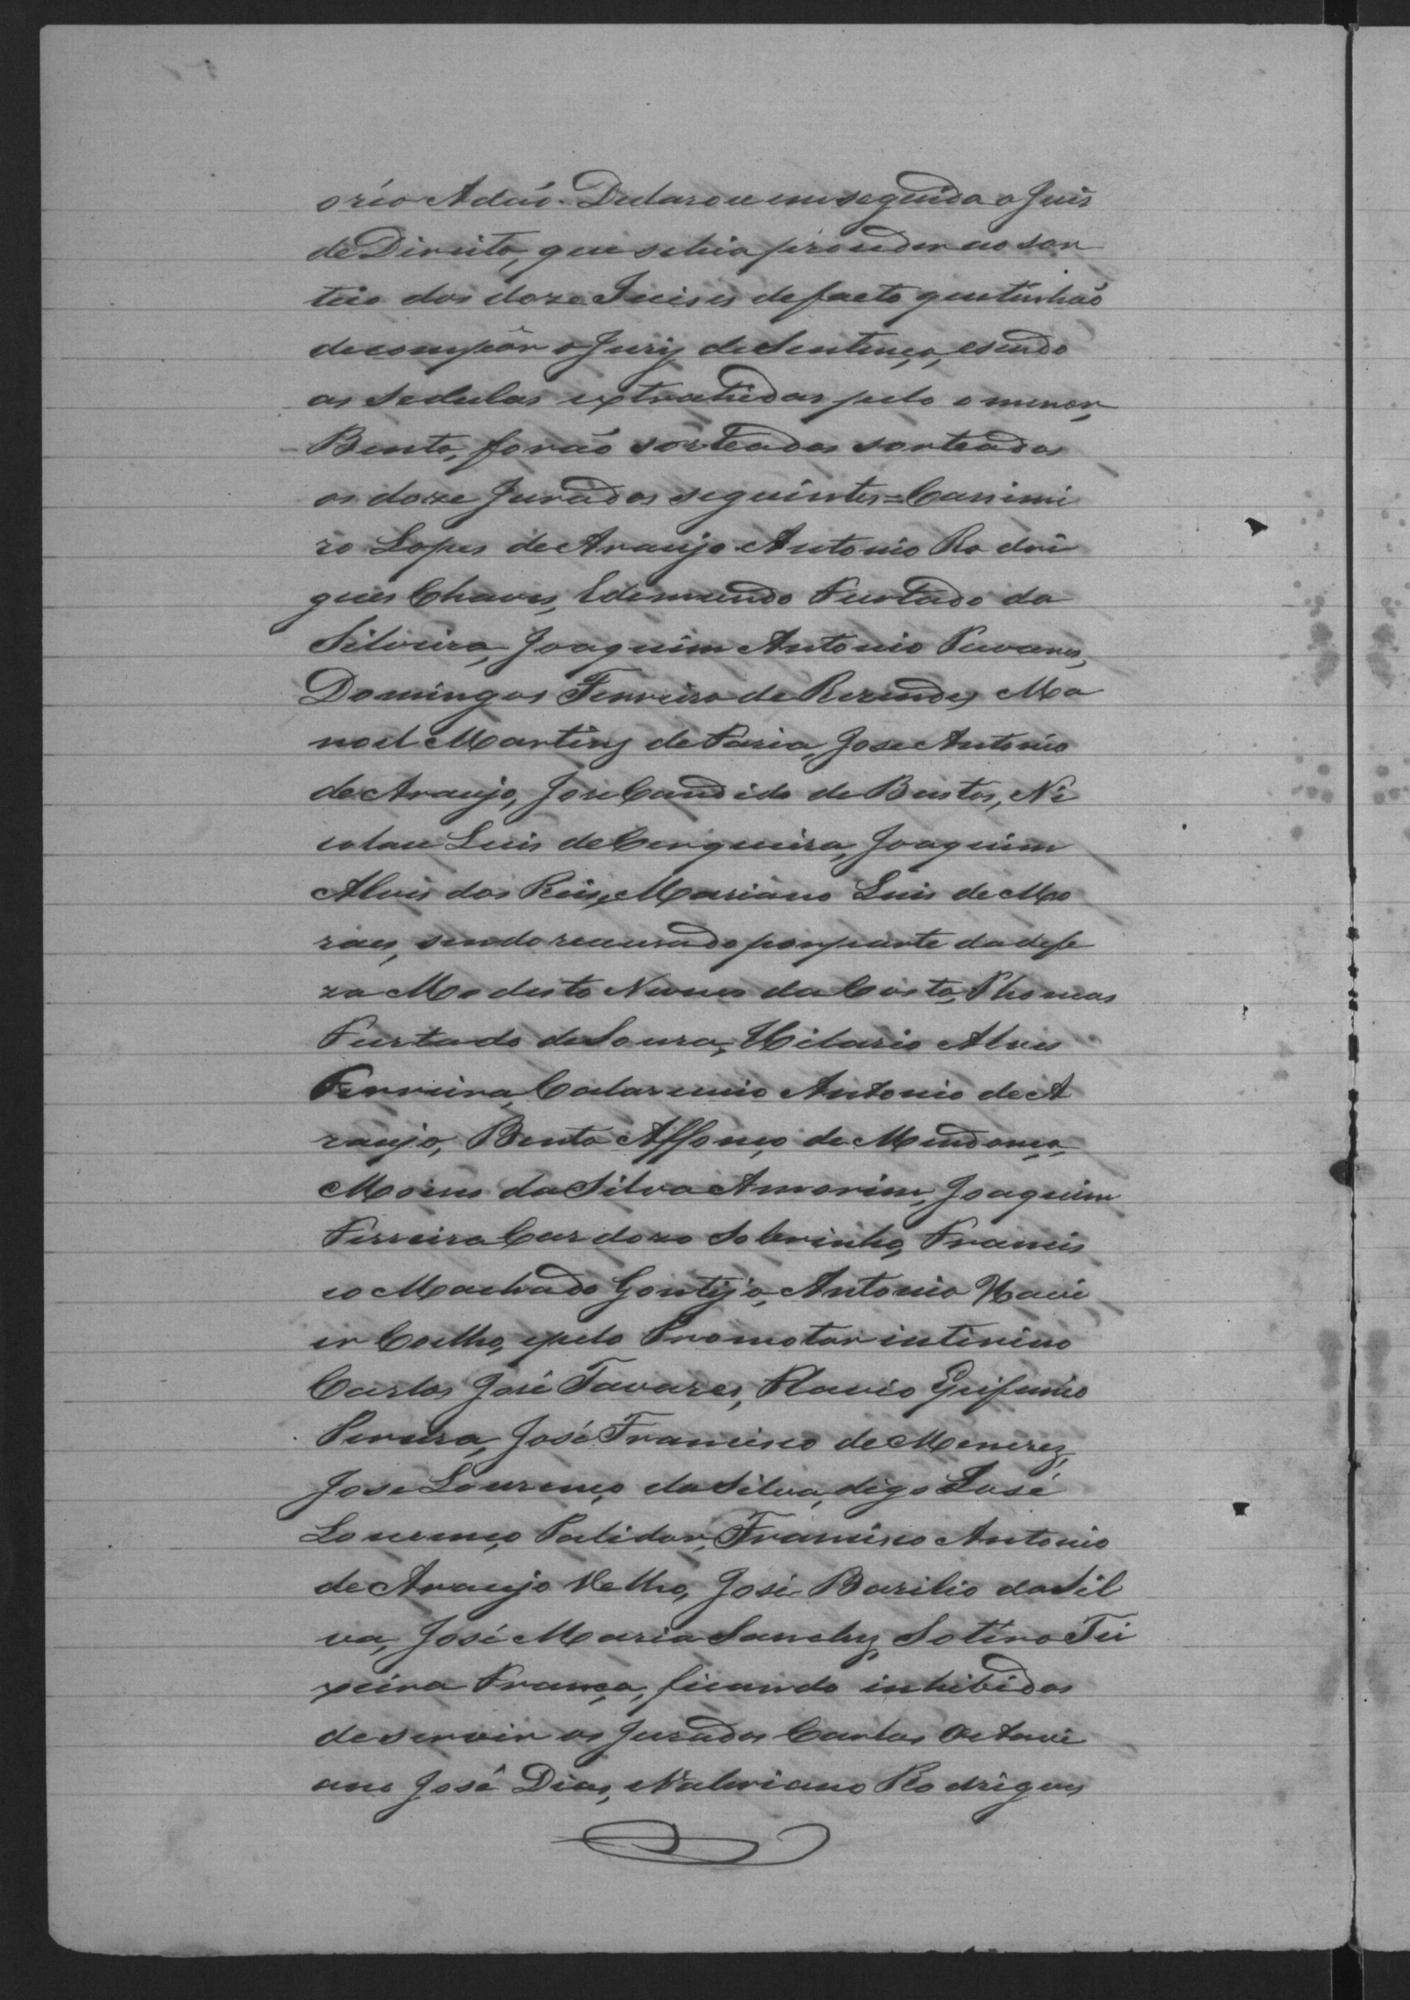 o réo Adão. Declarou em seguida o Juis
de Direito, que se hia proceder ao sor
teio dos doze Juises de facto que tinhão
de compôr o Jury de Sentença, e sendo
as sedulas extrahidas pelo o menor,
Bento, forão sorteados sorteados
os doze Jurados seguintes = Casimi
ro Lopes de Araujo Antonio Rodri
gues Chaves, Edemundo Furtado da
Silveira, Joaquim Antonio Tavares,
Domingos Ferreira de Rezende, Ma
noel Martins de Faria, Jose Antonio
de Araujo, Jose Candido de Bastos, Ni
colau Luis de Cerqueira, Joaquim
Alves dos Reis, Mariano Luis de Mo
raes, sendo recusado por parte da defe
za Modesto Nunes da Costa, Thomas
Furtado de Souza, Hilario Alves
Ferreira, Antonio de A
raujo, Bento Affonço de Mendonça,
Moises da Silva Amorim, Joaquim
Ferreira Cardozo Sobrinho, Francis
co Machado Gontijo, Antonio Xavi
er Coelho, e pelo Promotor interino
Carlos José Tavares, Flavio Epifanio
Pereira, José Francisco de Menezes,
Jose Lourenço da Silva, digo José
Lourenço Francisco Antonio
de Araujo Velho, José Bazilio da Sil
va, José Maria Sanches, Sotero Tei
xeira França, ficando inhibidos
de servir os Jurados Carlos Octavi
ano José Dias, Valeriano Rodrigues